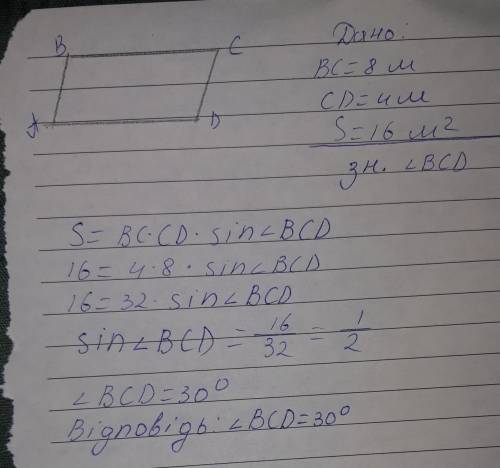 B C
A D
Дано:
BC=8 м
CD=4м
S=16 м²
зн. ∠BCD
S= BC·CD·sin∠BCD
16= 4·8·sin∠BCD
16=32·sin∠BCD
sin∠BCD = 16/32 = 1/2
∠BCD=30⁰
Відповідь: ∠BCD=30⁰